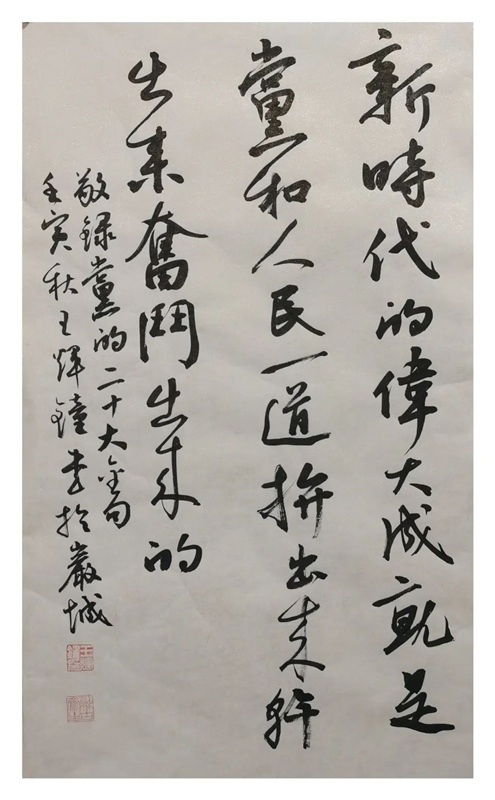 新時代的偉大成就是
黨和人民一道拚出来幹
出来奮鬥出来的
敬録黨的二十大金句
壬寅秋王輝鐘書於巖城